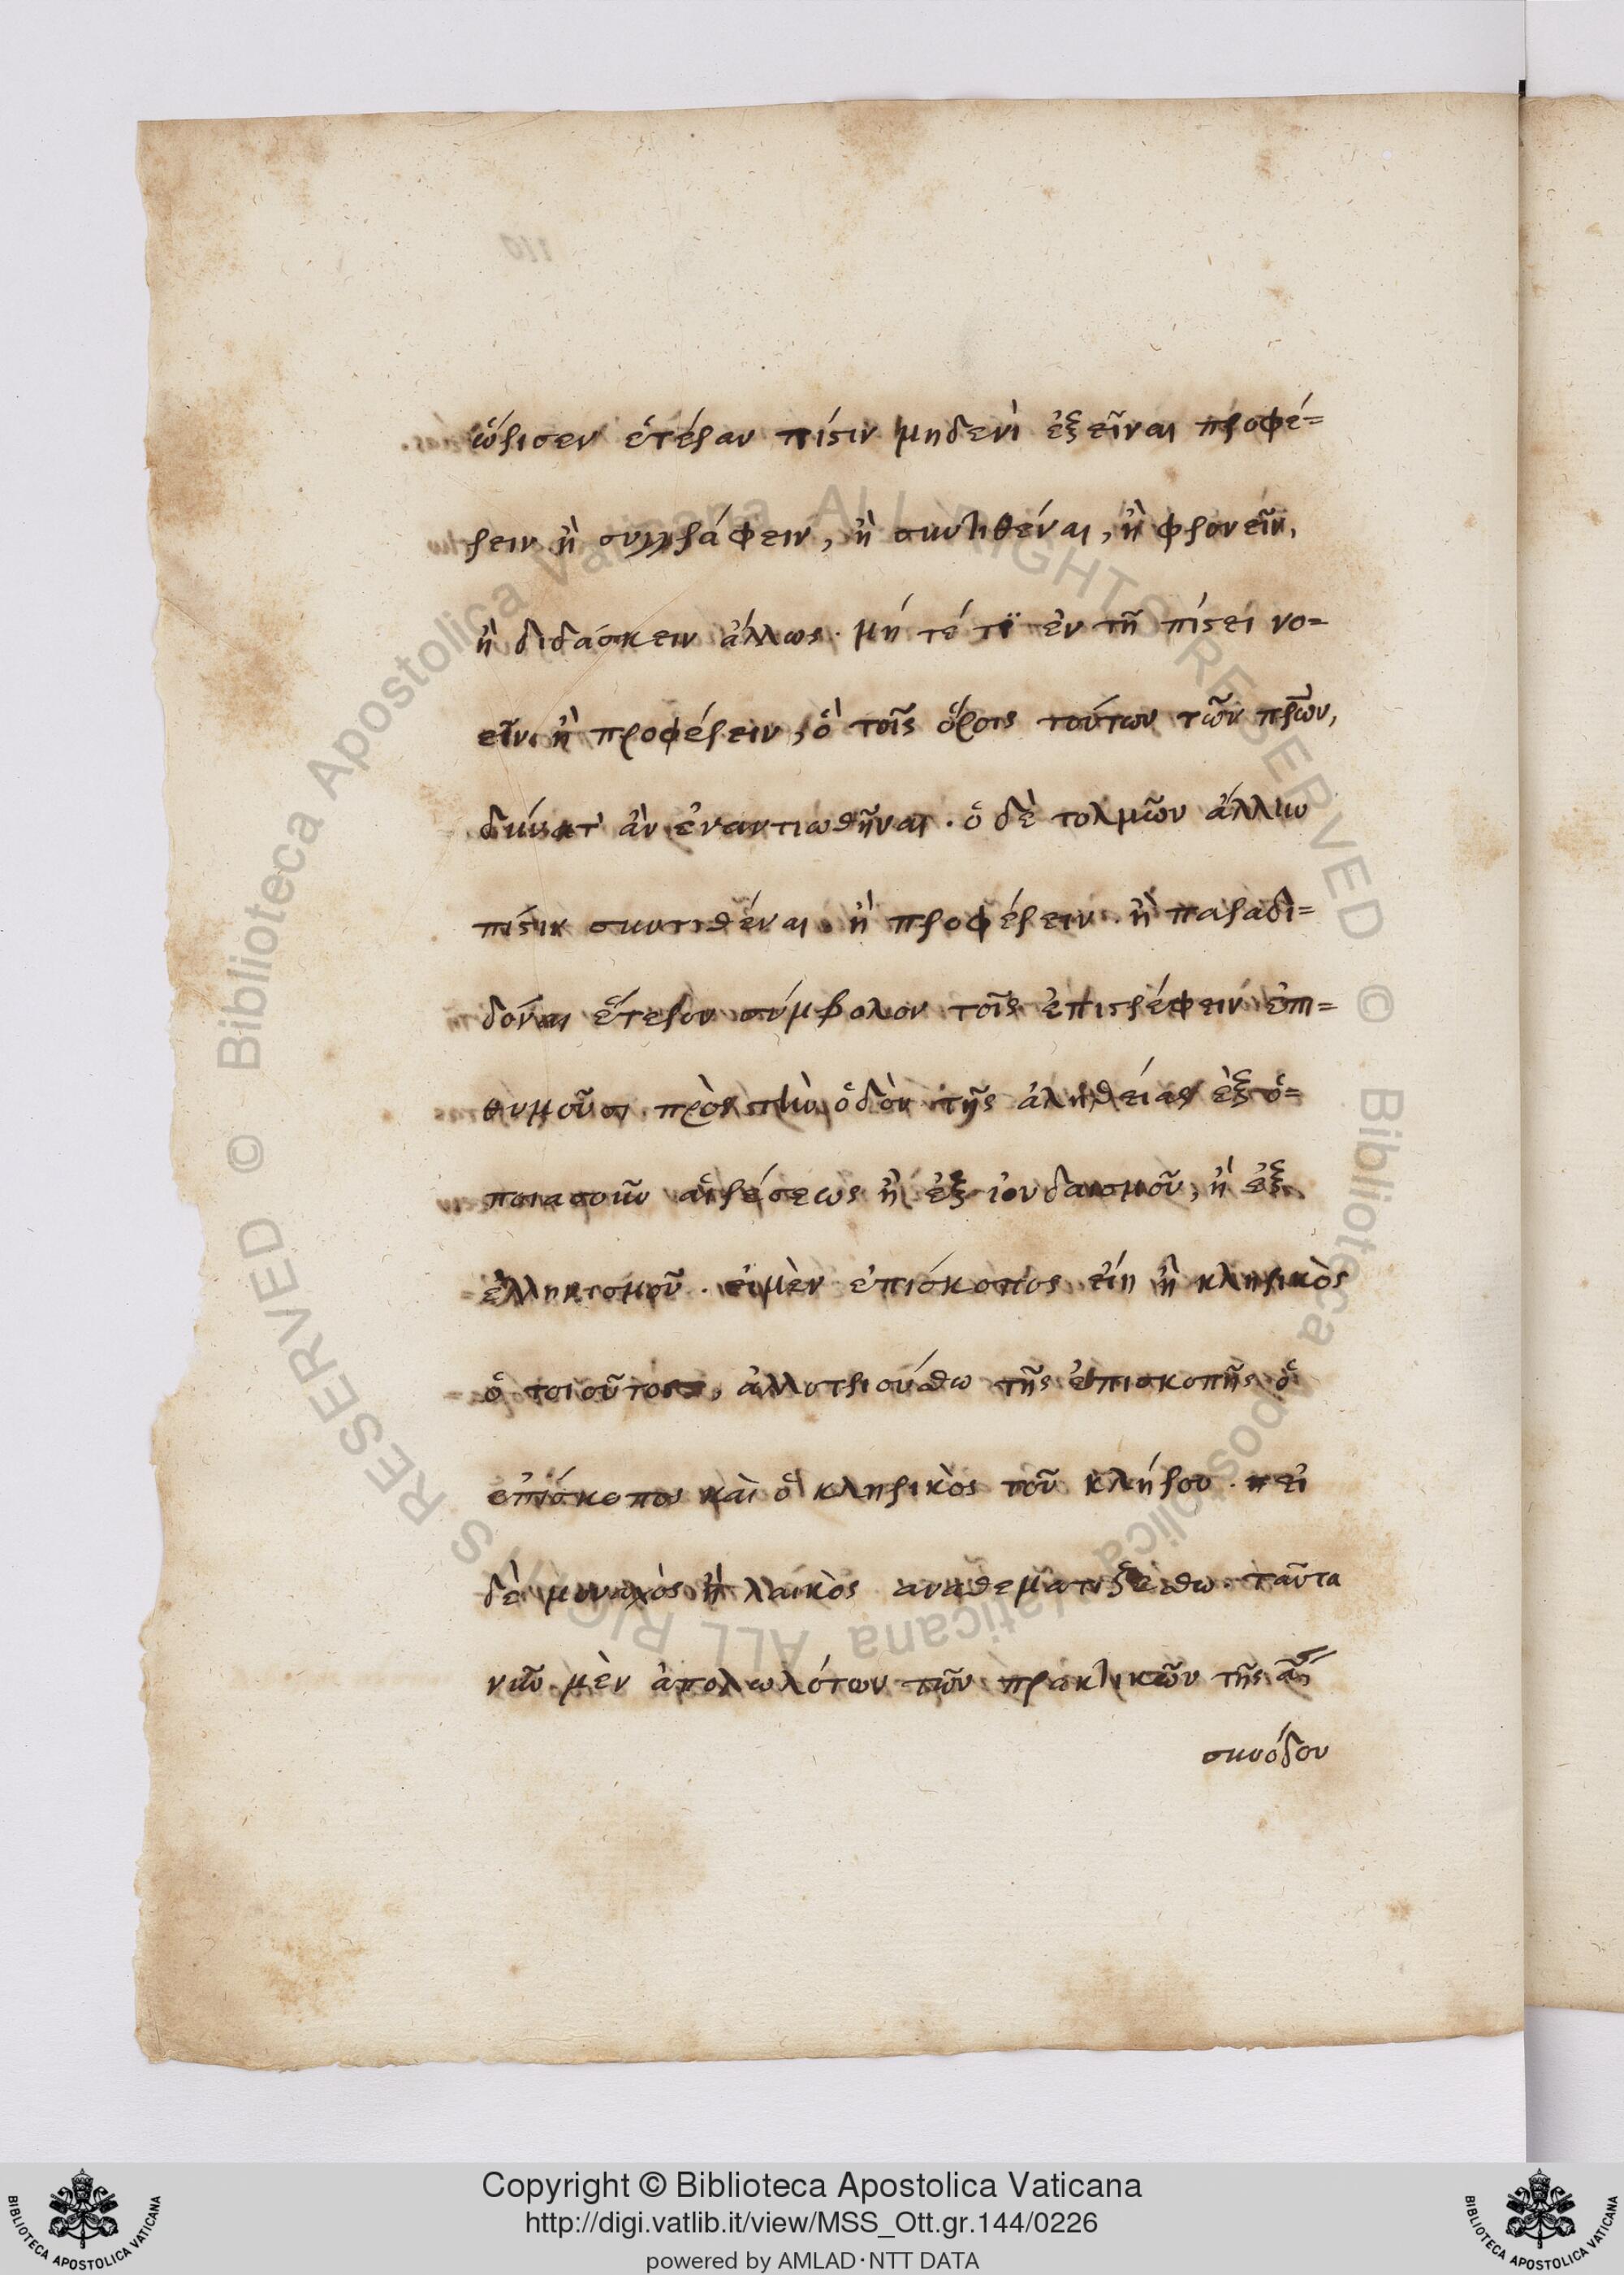 ὥρισεν ἑτέραν πίστιν μηδενὶ ἐξεῖναι προφέ=
ρειν ἢ συγγράφειν, ἢ συντιθέναι, ἢ φρονεῖν,
ἢ διδάσκειν ἄλλως. μή τέ τϊ ἐν τῇ πίστει νο=
εῖν ἢ προφέρειν, ὃ τοῖς ὅροις τούτων τῶν πρων,
δύναιτ' ἂν ἐναντιωθῆναι. ὁ δὲ τολμῶν ἄλλην
πίστιν συντιθέναι ἢ προφέρειν. ἢ παραδι=
δόναι ἕτερον σύμβολον τοῖς ἐπιστρέφειν ἐπι=
θυμοῦσι πρὸς τὴν ὁδὸν τῆς ἀληθείας ἐξ ὁ=
ποιασοῦν αἱρέσεως ἢ ἐξ ἰουδαισμοῦ, ἢ ἐξ
ἑλληνισμοῦ. εἰ μὲν ἐπίσκοπος εἴη ἢ κληρικὸς
ὁ τοιοῦτος, ἀλλοτριούσθω τῆς ἐπισκοπῆς ὁ
ἐπίσκοπος καὶ ὁ κληρικὸς τοῦ κλήρου. εἰ
δὲ μοναχὸς ἢ λαικὸς αναθεματιζέσθω. ταῦτα
νῦν μὲν ἀπολωλότων τῶν πρακτικῶν τῆς
συνόδου
Copyright © Biblioteca Apostolica Vaticana
http://digi.vatlib.it/view/MSS_Ott.gr.144/0226
powered by AMLAD·NTT DATA
BIBLIOTECA APOSTOLICA VATICANA
BIBLIOTECA APOSTOLICA VATICANA
© Biblioteca Apostolica Vaticana ALL RIGHTS RESERVED
© Biblioteca Apostolica Vaticana ALL RIGHTS RESERVED